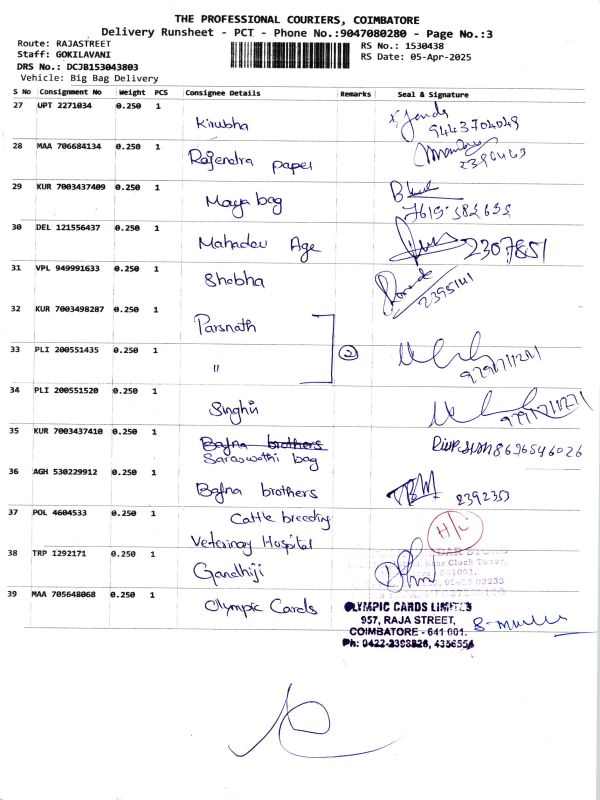 THE PROFESSIONAL COURIERS, COIMBATORE
Delivery Runsheet - PCT - Phone No.:9047080280 - Page No.:3
Route: RAJASTREET
RS No.: 1530438
Staff: GOKILAVANI
RS Date: 05-Apr-2025
DRS No.: DCJB153043803
Vehicle: Big Bag Delivery
S No Consignment No Weight PCS Consignee Details Remarks Seal & Signature
27 UPT 2271034 0.250 1 Kirubha
9443704049
28 MAA 706684134 0.250 1 Rajendra paper
2396463
29 KUR 7003437409 0.250 1 Maya bag
30 DEL 121556437 0.250 1 Mahadev Age 2307851
31 VPL 949991633 0.250 1 Shobha
2395141
32 KUR 7003498287 0.250 1 Parsnath
33 PLI 200551435 0.250 1 " 2
34 PLI 200551520 0.250 1 Singhvi
35 KUR 7003437410 0.250 1 Bafna brothers
Saraswathi bag 8696546026
36 AGH 530229912 0.250 1 Bafna brothers TBM 2392353
37 POL 4604533 0.250 1 Cattle breeding
Veterinary Hospital H/i
38 TRP 1292171 0.250 1 Gandhiji
Clock Tower,
39 MAA 705648068 0.250 1 Olympic Cards
OLYMPIC CARDS LIMITED
957, RAJA STREET,
COIMBATORE - 641 001.
Ph: 0422-2398826, 4356554